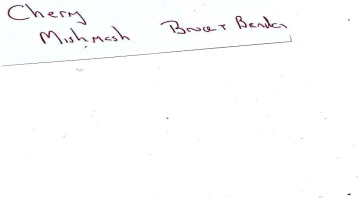 Cherry
Mishmash Bruce + Bender